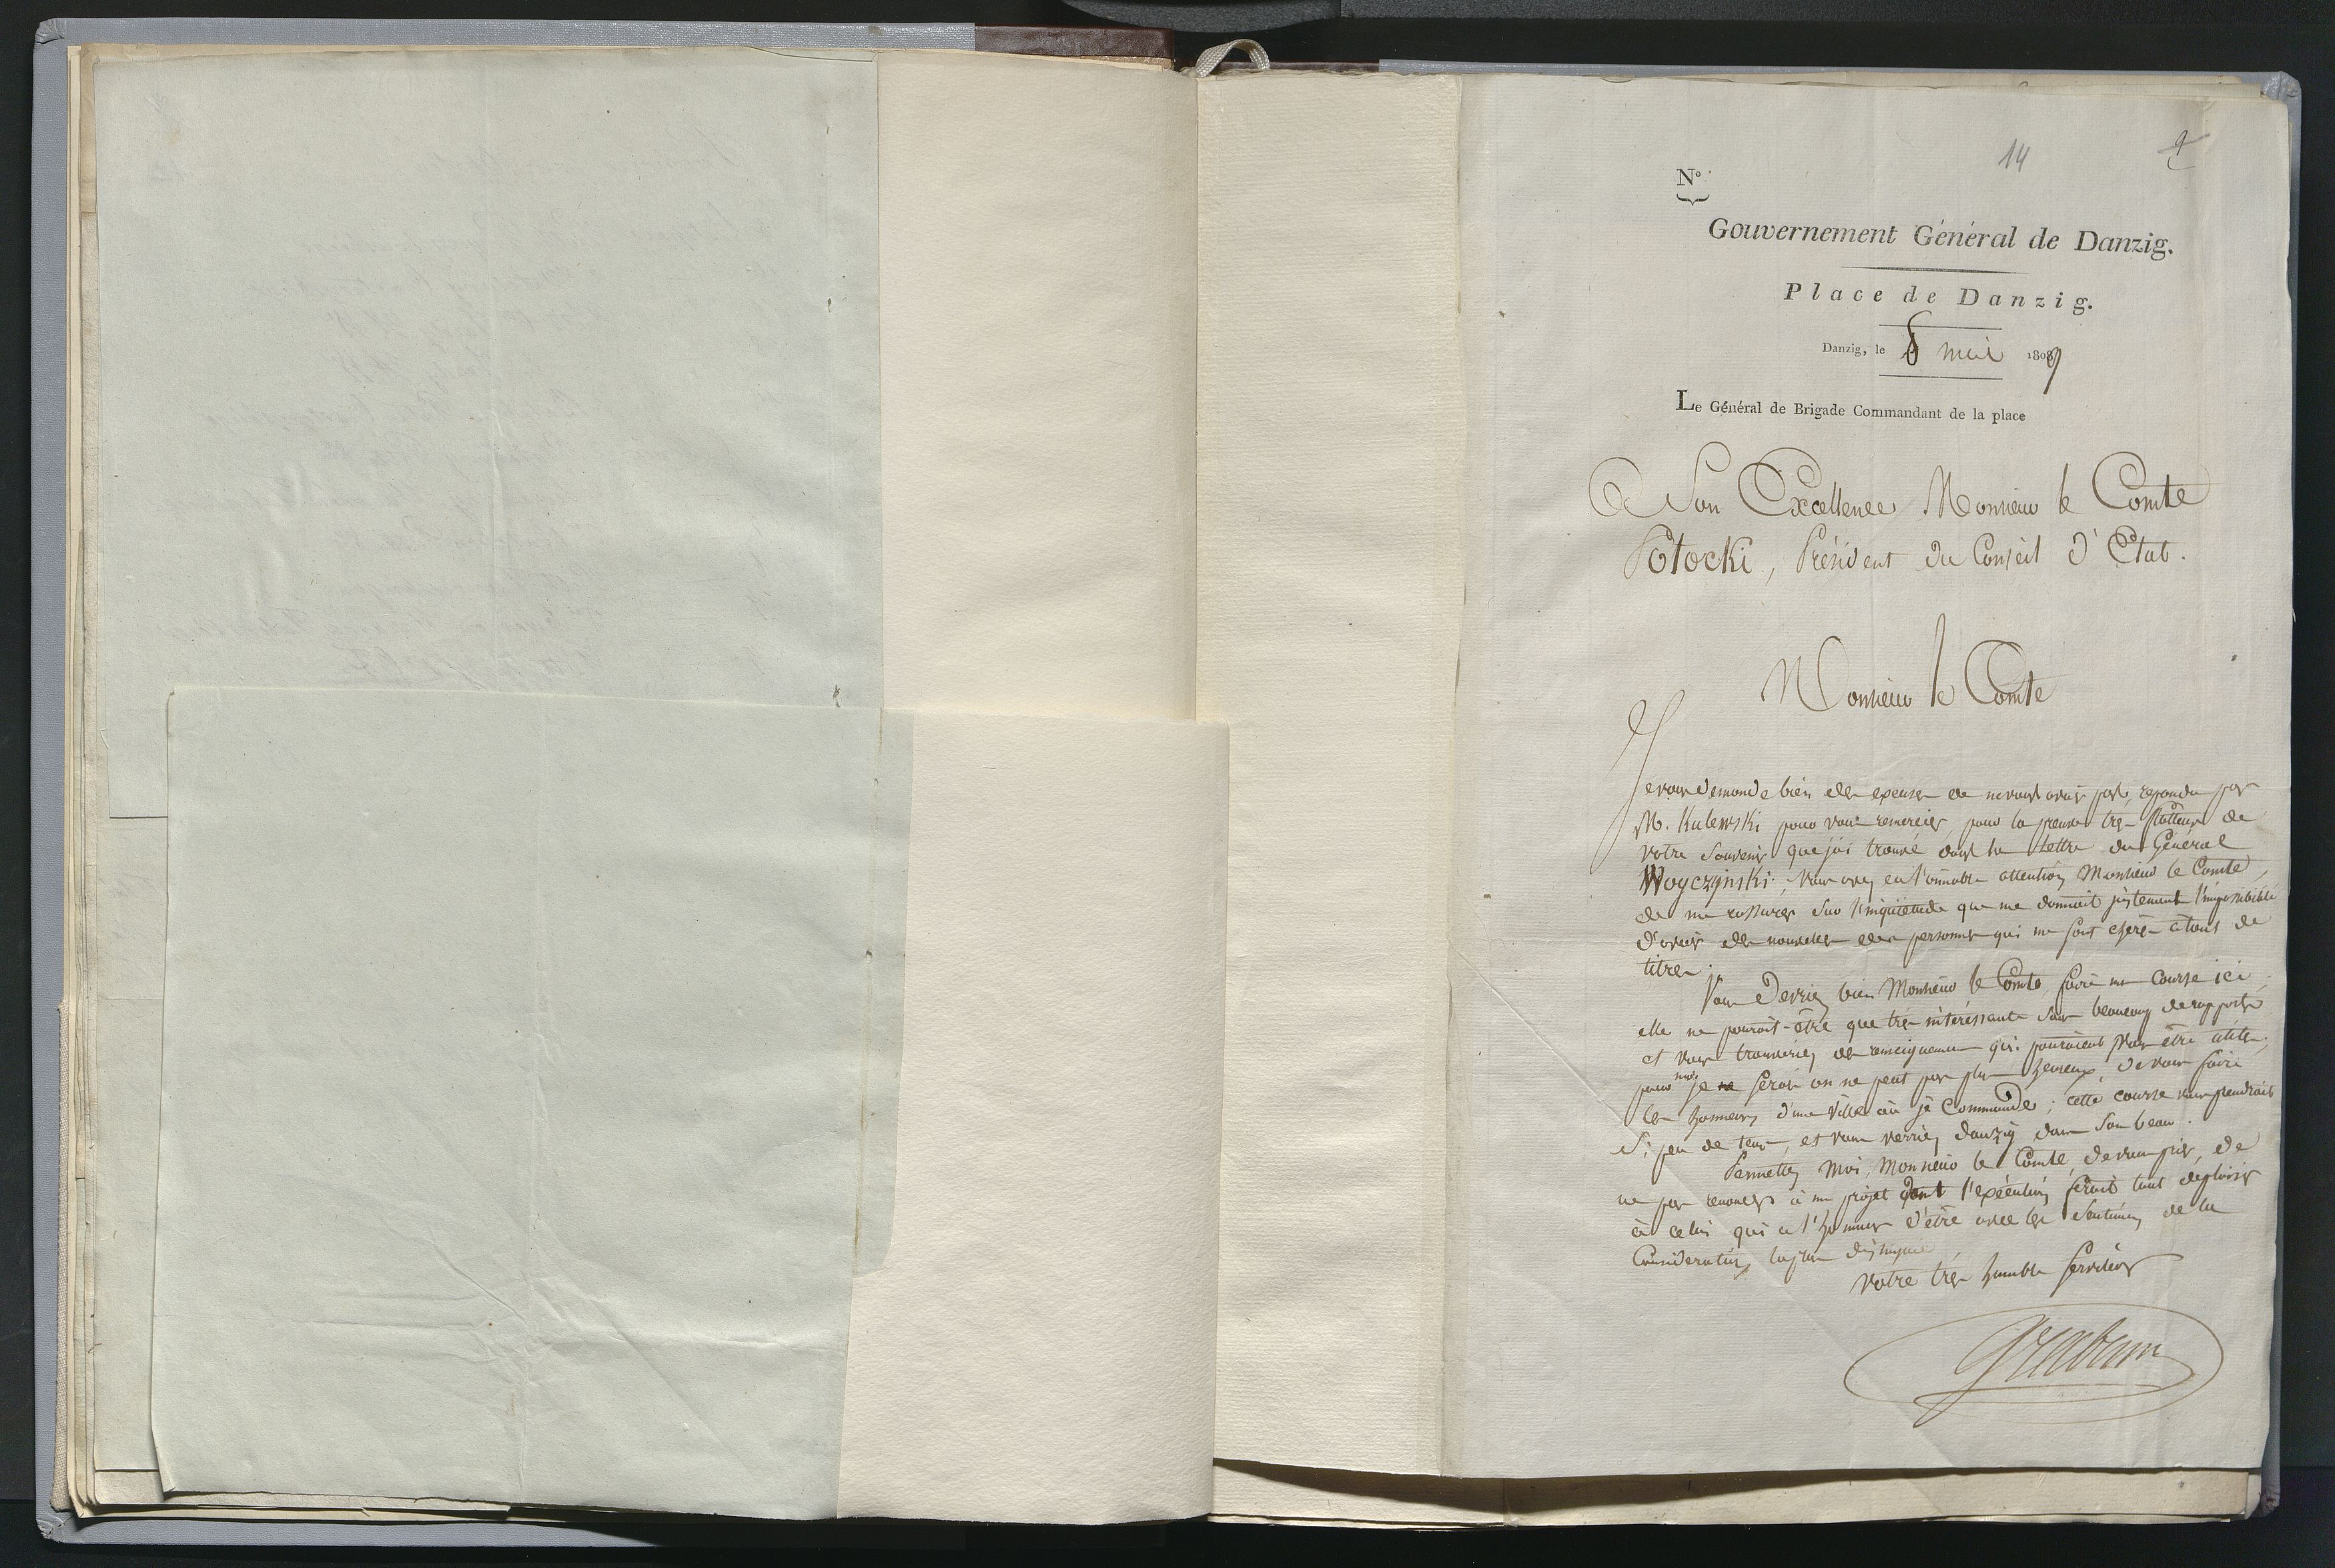 14
N°
Gouvernement Général de Danzig.
Place de Danzig.
Danzig, le 8 mai 1809
Le Général de Brigade Commandant de la place
A Son Excellence Monsieur le Comte
Potocki, Président du Conseil d'Etat.
Monsieur le Comte
Je vous demande bien des excuses de ne vous avoir pas répondu par
M. Kulewski pour vous remercier, pour la preuve très flatteuse de
votre souvenir que j'ai trouvé dans la lettre du Général
Woyczynski; vous avez eu l'aimable attention Monsieur le Comte,
de me rassurer sur l'inquiétude que me donnait justement l'impossibilité
d'avoir des nouvelles des personnes qui me sont chères à tant de
titres.
Vous devriez bien Monsieur le Comte, faire une course ici,
elle ne pourroit-être que très intéressante sous beaucoup de rapports
et vous trouveriez des renseignemens qui pourroient vous être utiles;
pour moi je serois on ne peut pas plus heureux, de vous faire
les honneurs d'une ville où je commande; cette course vous prendrait
si peu de tems, et vous verriez danzig dans son beau.
Permettez moi, Monsieur le Comte, de vous prier, de
ne pas renoncer à un projet dont l'exécution feroit tant de plaisir
à celui qui a l'honneur d'être avec les sentimens de la
Considération la plus distinguée
votre très humble serviteur
Grabowski